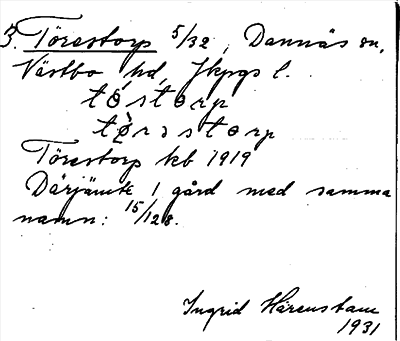 3. Törestorp 5/32, Dannäs sn,
Västbo hd, Jkpgs l.
tǿstorp
tø̀rəstorp
Törestorp kb 1919
Därjämte 1 gård med samma
namn: 15/128.
Ingrid Härenstam
1931